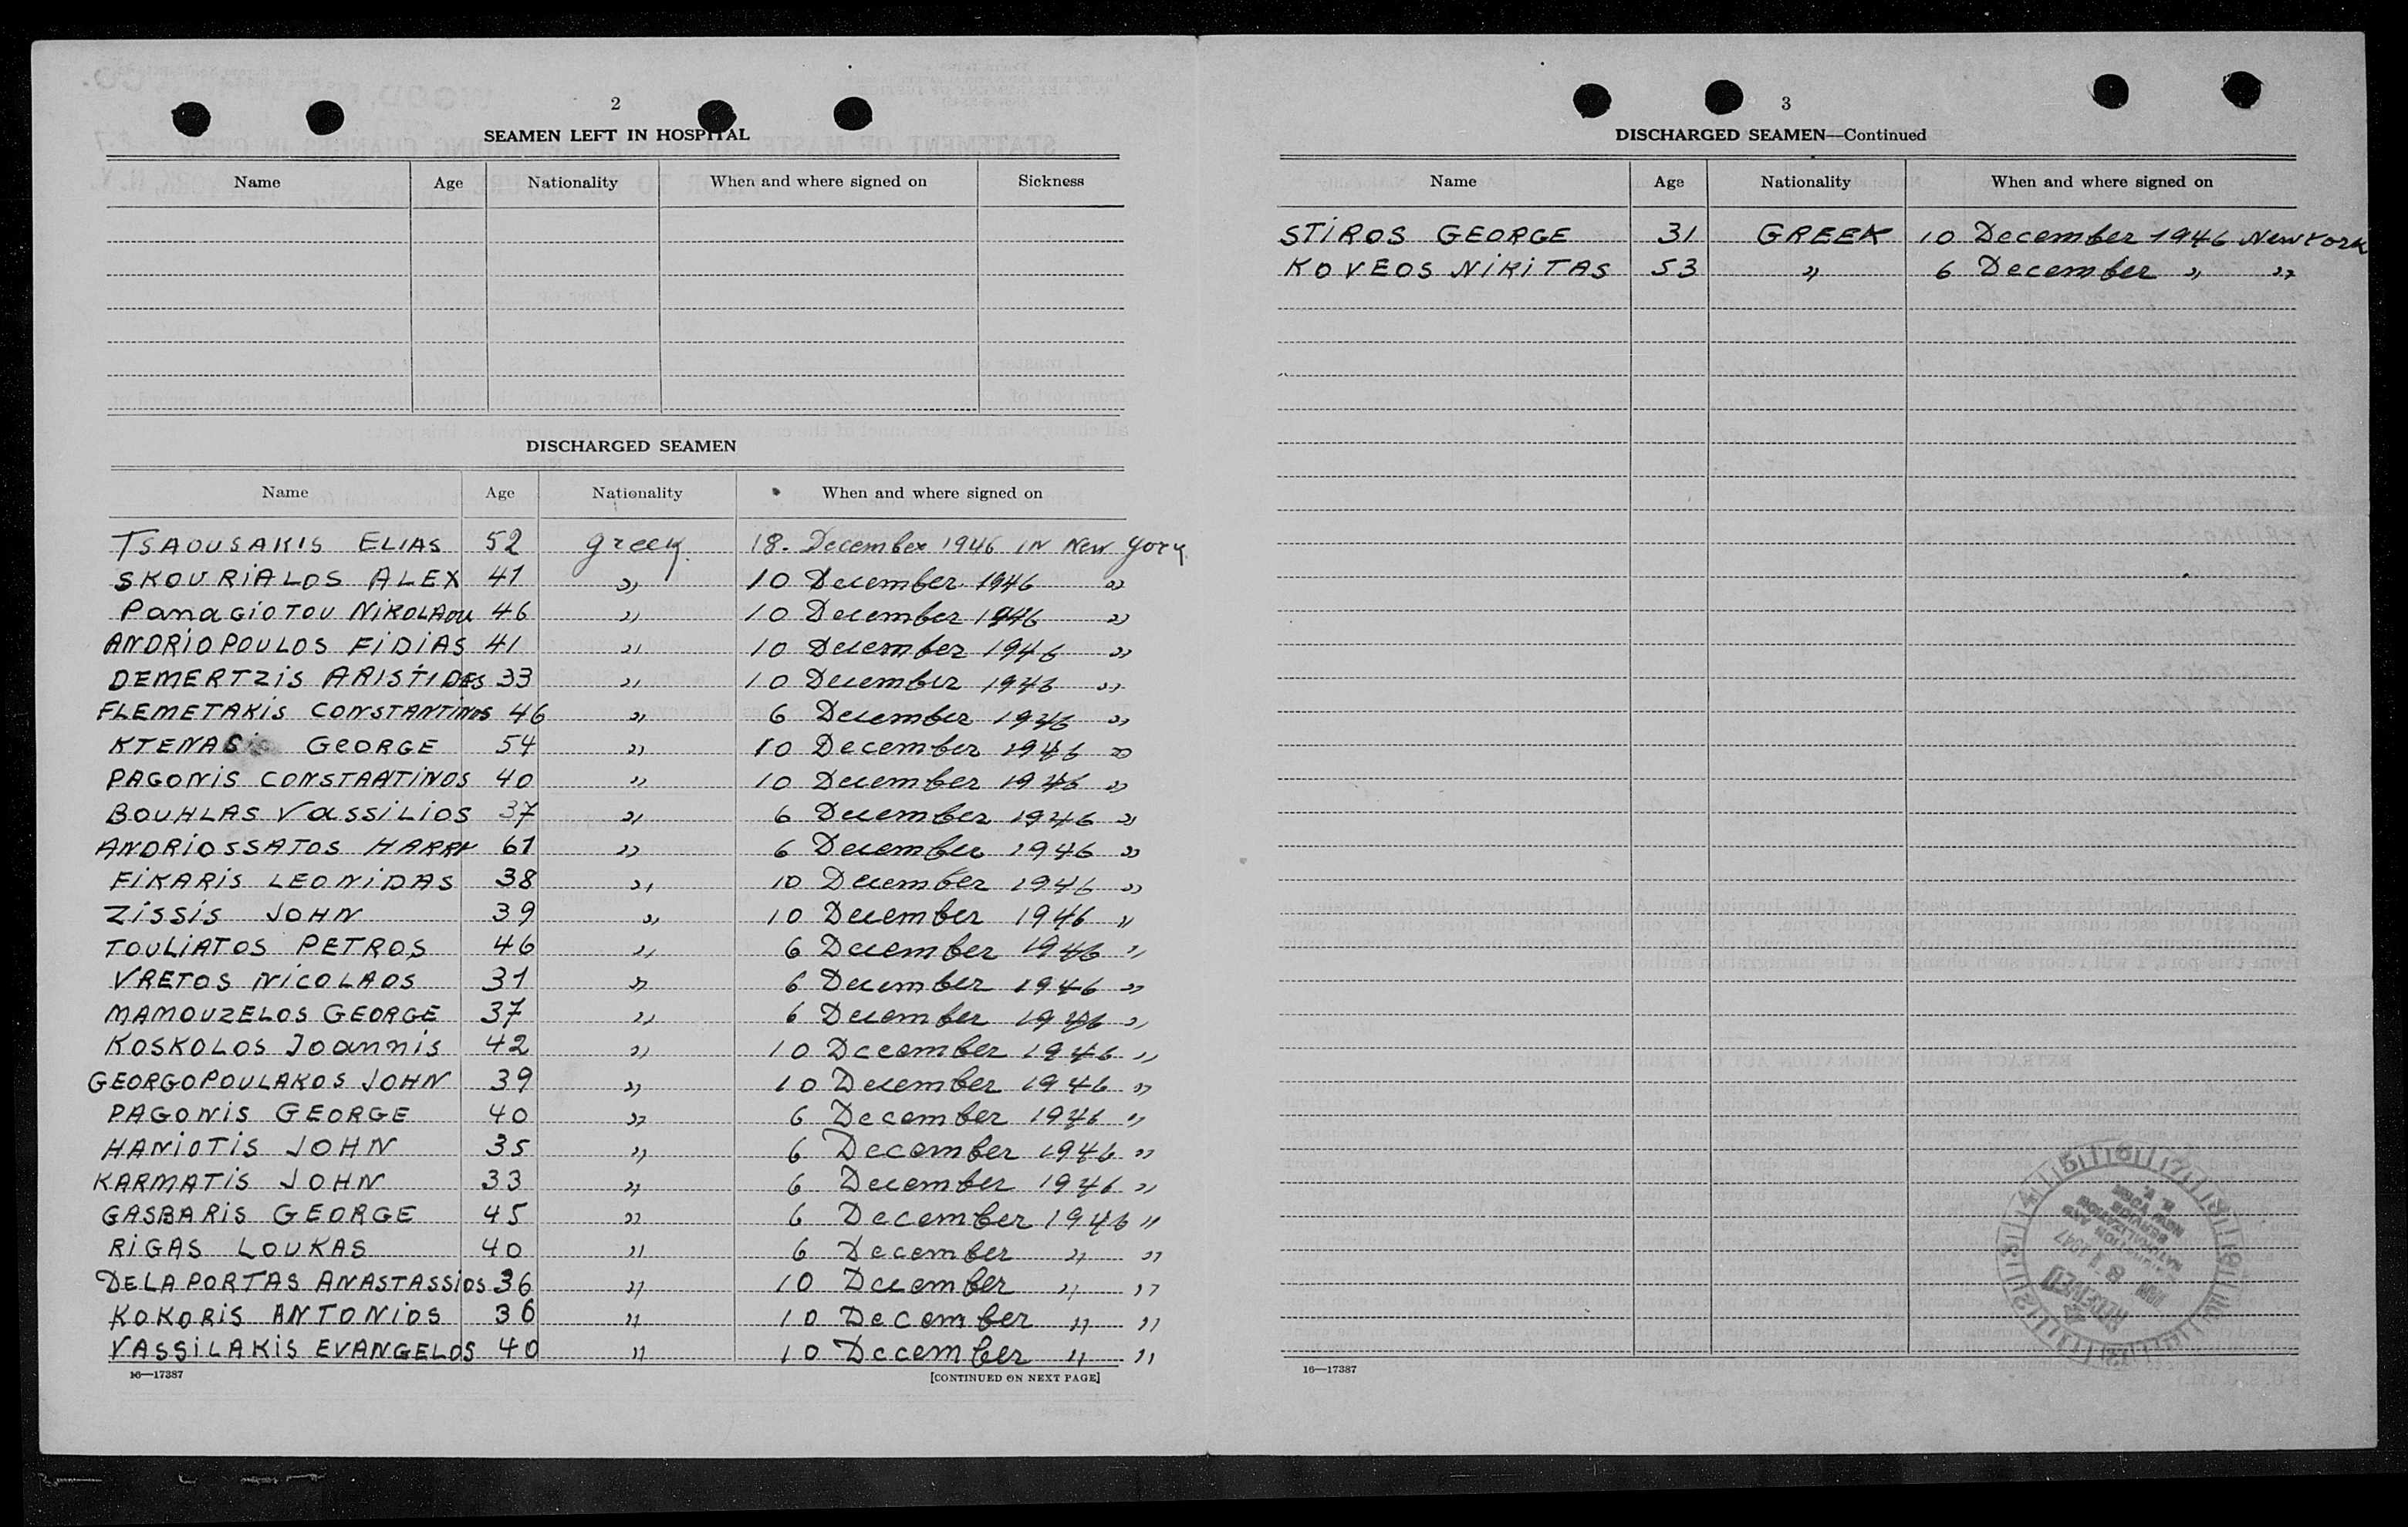 2
SEAMEN LEFT IN HOSPITAL
Name Age Nationality When and where signed on Sickness
DISCHARGED SEAMEN
Name Age Nationality When and where signed on
TSAOUSAKIS ELIAS 52 greek 18. December 1946 IN New York
SKOURIALOS ALEX 41 " 10 December 1946 "
PanaGIOTOU NIKOLAOU 46 " 10 December 1946 "
ANDRIOPOULOS FIDIAS 41 " 10 December 1946 "
DEMERTZIS ARISTIDES 33 " 10 December 1946 "
FLEMETAKIS CONSTANTINOS 46 " 6 December 1946 "
KTENAS GEORGE 54 " 10 December 1946 "
PAGONIS CONSTANTINOS 40 " 10 December 1946 "
BOUHLAS VASSILIOS 37 " 6 December 1946 "
ANDRIOSSATOS HARRY 61 " 6 December 1946 "
FIKARIS LEONIDAS 38 " 10 December 1946 "
ZISSIS JOHN 39 " 10 December 1946 "
TOULIATOS PETROS 46 " 6 December 1946 "
VRETOS NICOLAOS 31 " 6 December 1946 "
MAMOUZELOS GEORGE 37 " 6 December 1946 "
KOSKOLOS Joannis 42 " 10 December 1946 "
GEORGOPOULAKOS JOHN 39 " 10 December 1946 "
PAGONIS GEORGE 40 " 6 December 1946 "
HANIOTIS JOHN 35 " 6 December 1946 "
KARMATIS JOHN 33 " 6 December 1946 "
GASBARIS GEORGE 45 " 6 December 1946 "
RIGAS LOUKAS 40 " 6 December " "
DELAPORTAS ANASTASSIOS 36 " 10 December " "
KOKORIS ANTONIOS 36 " 10 December " "
VASSILAKIS EVANGELOS 40 " 10 December " "
16—17387
[CONTINUED ON NEXT PAGE]
3
DISCHARGED SEAMEN—Continued
Name Age Nationality When and where signed on
STIROS GEORGE 31 GREEK 10 December 1946 New York
KOVEOS NIKITAS 53 " 6 December " "
16—17387
RECEIVED
JAN 8 1947
IMMIGRATION AND
NATURALIZATION
SERVICE
NEW YORK
N. Y.